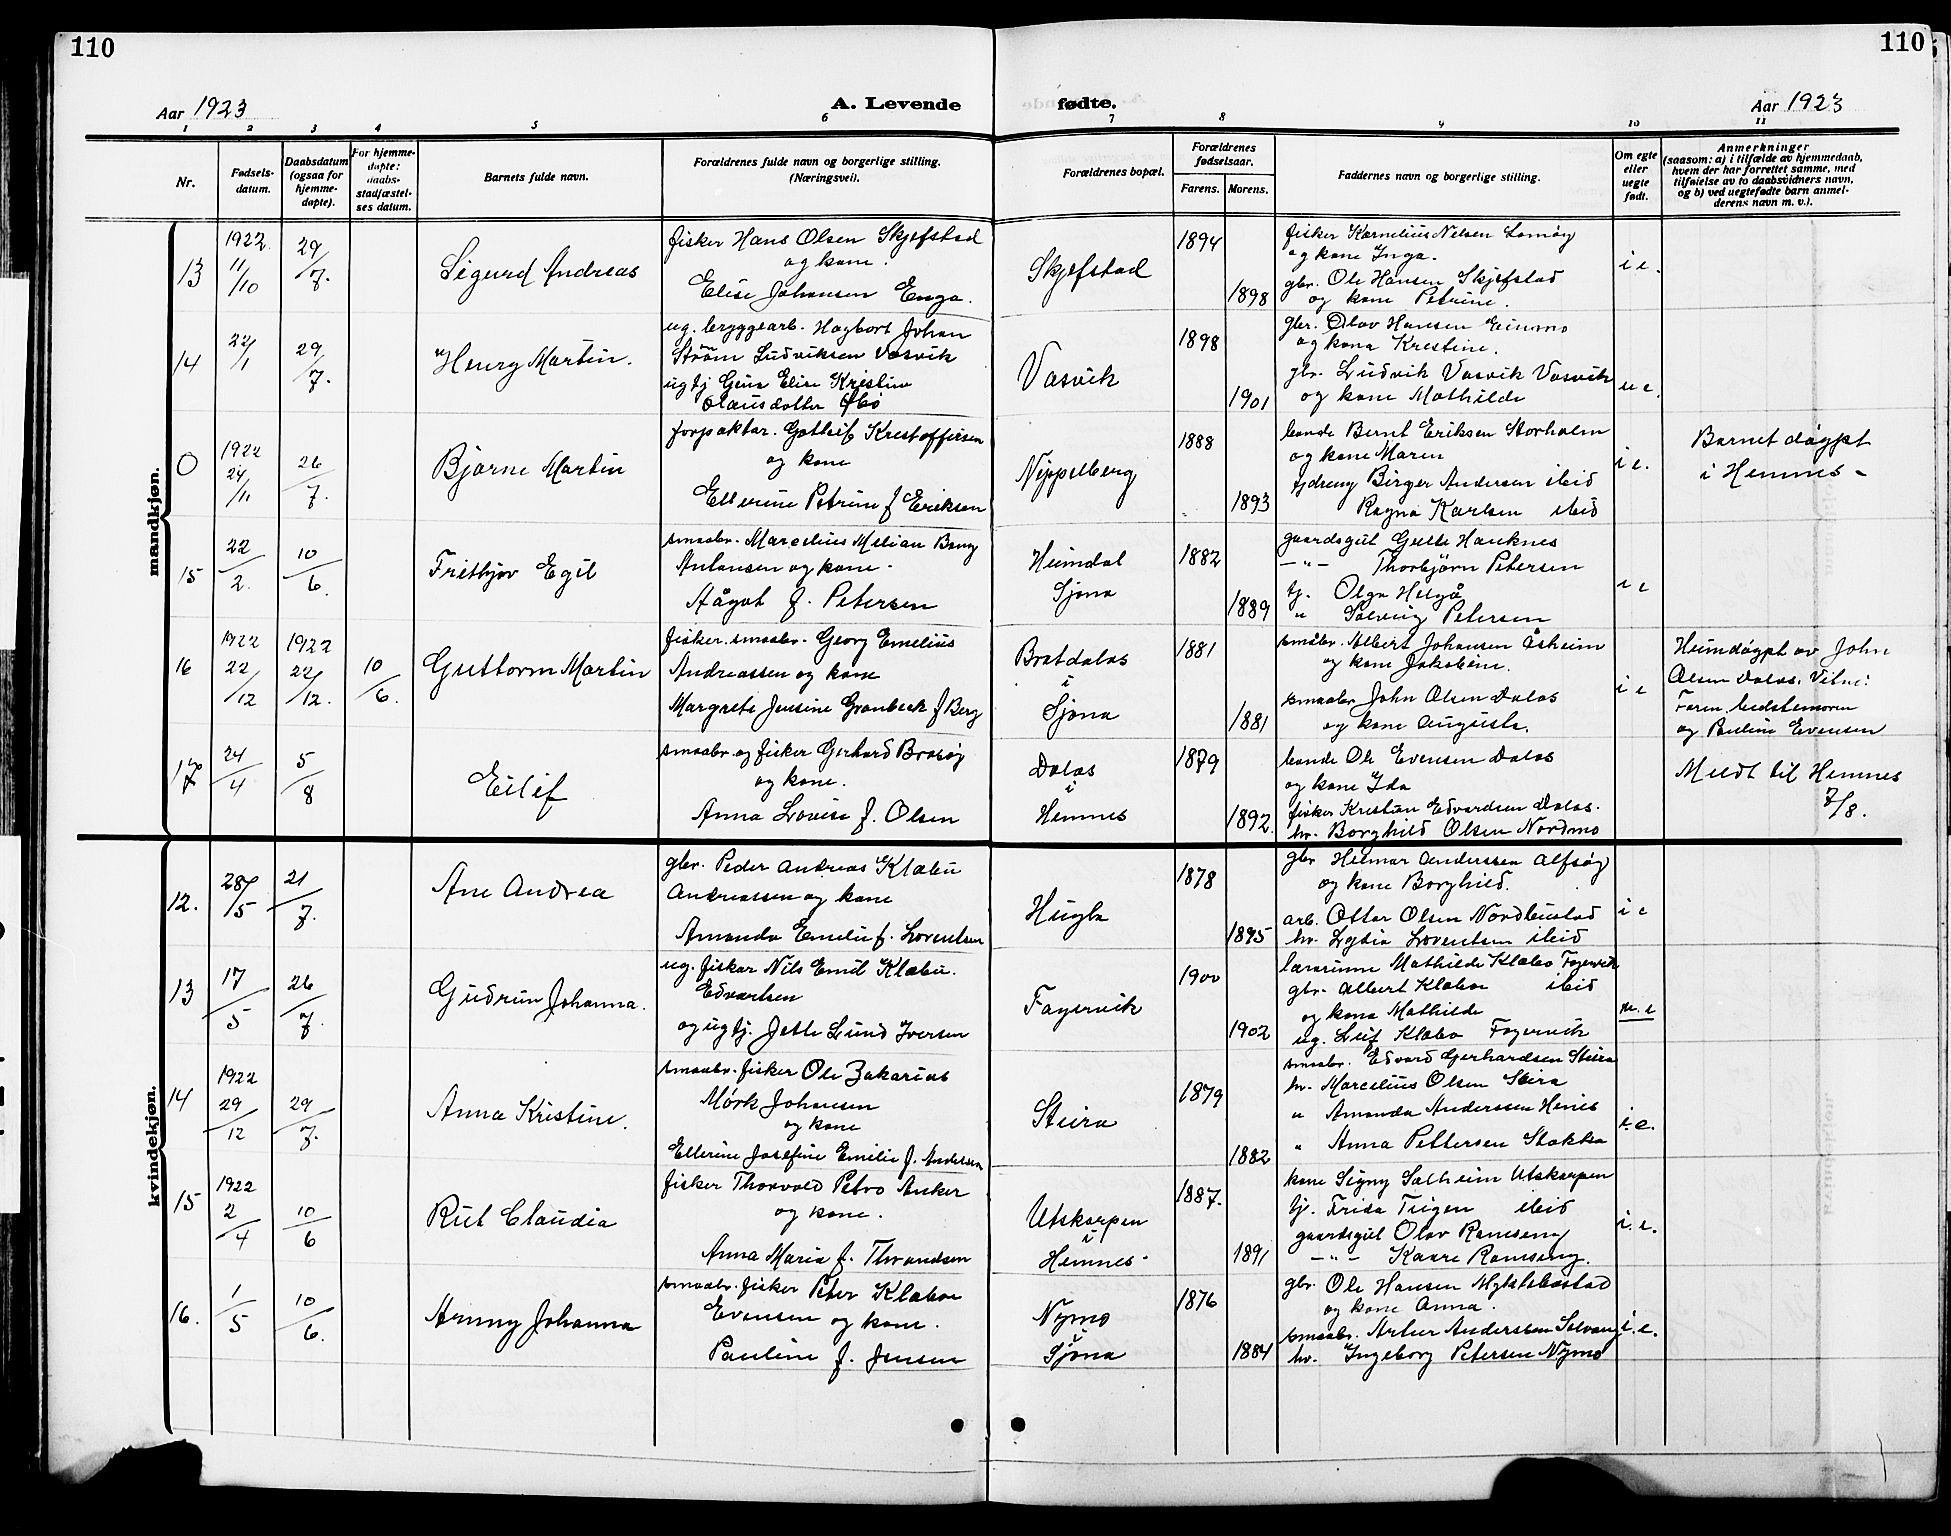 110
110
Aar 1923
A. Levende
fødte.
Aar 1923
1 2 3 4 5 6 7 8 9 10 11
Nr.
Fødsels-
datum.
Daabsdatum
(ogsaa for
hjemme-
døpte).
For hjemme-
døpte:
daabs-
stadfæstel-
ses datum.
Barnets fulde navn.
Forældrenes fulde navn og borgerlige stilling.
(Næringsvei).
Forældrenes bopæl.
Forældrenes
fødselsaar.
Farens. Morens.
Faddernes navn og borgerlige stilling.
Om egte
eller
uegte
født.
Anmerkninger
(saasom: a) i tilfælde av hjemmedaab,
hvem der har forrettet samme, med
tilføielse av to daabsvidners navn,
og b) ved uegtefødte barn anmel-
derens navn m. v.).
mandkjøn.
13
1922
11/10
29/7.
Sigurd Andreas
fisker Hans Olsen Skjefstad
og kone.
Elise Johansen Enga.
Skjefstad
1894
1898
fisker Kornelius Nelsen Lomøy
og kone Inga.
gbr. Ole Hansen Skjefstad
og kone Petrine.
i e.
14
22/1
29/7.
Henry Martin.
ug. bryggearb. Hagbart Johan
Strøm Ludviksen Vasvik
ug tj Gina Elise Kristine
Olausdatter Øbø
Vasvik
1898
1901
gbr. Olav Hansen Einmo
og kona Krestine.
gbr. Ludvik Vasvik Vasvik
og kone Mathilde
u e.
0
1922
24/11
26/7.
Bjarne Martin
forpaktar. Gotleif Krestoffersen
og kone
Ellerine Petrine f Eriksen
Nippelberg
1888
1893
bonde Bernt Eriksen Storholm
og kone Maren
tjdreng Birger Andersen ibid
Ragna Karlsen ibid
i e.
Barnet døypt
i Hemnes -
15
22/2.
10/6.
Frithjov Egil
smaabr. Marcelius Melian Bang
Antonsen og kone.
Aågot f. Petersen
Heimdal
Sjona
1882
1889
gaardsgut Gutte Hauknes
- " - Thorbjørn Petersen
tj. Olga Helgå
" Solveig Petersen
i e
16
1922
22/12
1922
22/12.
10/6.
Guttorm Martin
fisker. smaabr. Georg Emelius
Andreassen og kone
Margrete Jensine Grønbeck f Berg
Bratdalas
i
Sjona
1881
1881
småbr. Albert Johansen Åsheim
og kone Jakobine.
smaabr John Olsen Dalas
og kone Augusta.
i e
Heimdøypt av John
Olsen Dalas. Vitne:
Faren, bedstemoren
og Pauline Evensen
17
24/4
5/8
Eilif
smaabr. og fisker Gerhard Brasøy
og kone.
Anna Lovise f. Olsen
Dalas
i
Hemnes
1879
1892.
bonde Ole Evensen Dalas
og kone Ida
fisker Kristian Edvardsen Dalas.
hr. Borghild Olsen Nordmo
Meldt til Hemnes
7/8.
kvindekjøn.
12.
28/5
21/7.
Ane Andrea
gbr. Peder Andreas Klæbu
Andreassen og kone
Amanda Emelie f. Lorentsen
Hugla
1878
1895
gbr Hilmar Anderssen Alfsøy
og kone Borghild.
arb. Ottar Olsen Nordbustad
hr. Lydia Lorentsen ibid
i e
13
17/5
26/7.
Gudrun Johanna.
ug. fiskar Nils Emil Klæbu.
Edvartsen
og ugtj. Jette Lund Iversen
Fagervik
1900
1902
lærarinne Mathilde Klæbo Fagervik
gbr. Albert Klæboe ibid
og kona Mathilde
ug. Leif Klæbo Fagervik
u. e
14
1922
29/12
29/7.
Anna Kristine.
smaabr. fisker Ole Zakarias
Mørk Johansen
og kone
Ellerine Josefine Emilie f. Andersen
Steira
1879
1882
smaabr. Edvard Gerhardsen Steira
hr. Marcelius Olsen Steira
" Amanda Anderssen Henes
" Anna Pettersen Stokka
i. e.
15
1922
2/4
10/6
Rut Claudia
fisker Thorvald Petro Anker
og kone.
Anna Maria f. Thrandsen
Utskarpen
i
Hemnes.
1887.
1891
kone Signy Salheim Utskarpen
tj. Frida Tugen ibid
gaardsgut Olav Ramseng
- " - Kaare Ramseng.
i. e.
16.
1/5
10/6.
Arnny Johanna
smaabr. fisker Peter Klæboe
Evensen og kone.
Pauline f. Jensen
Nymo
i
Sjona
1876
1884
gbr. Ole Hansen Myklebostad
og kone Anna.
smaabr. Artur Anderssen Solvang
hr. Ingeborg Petersen Nymo
i. e.